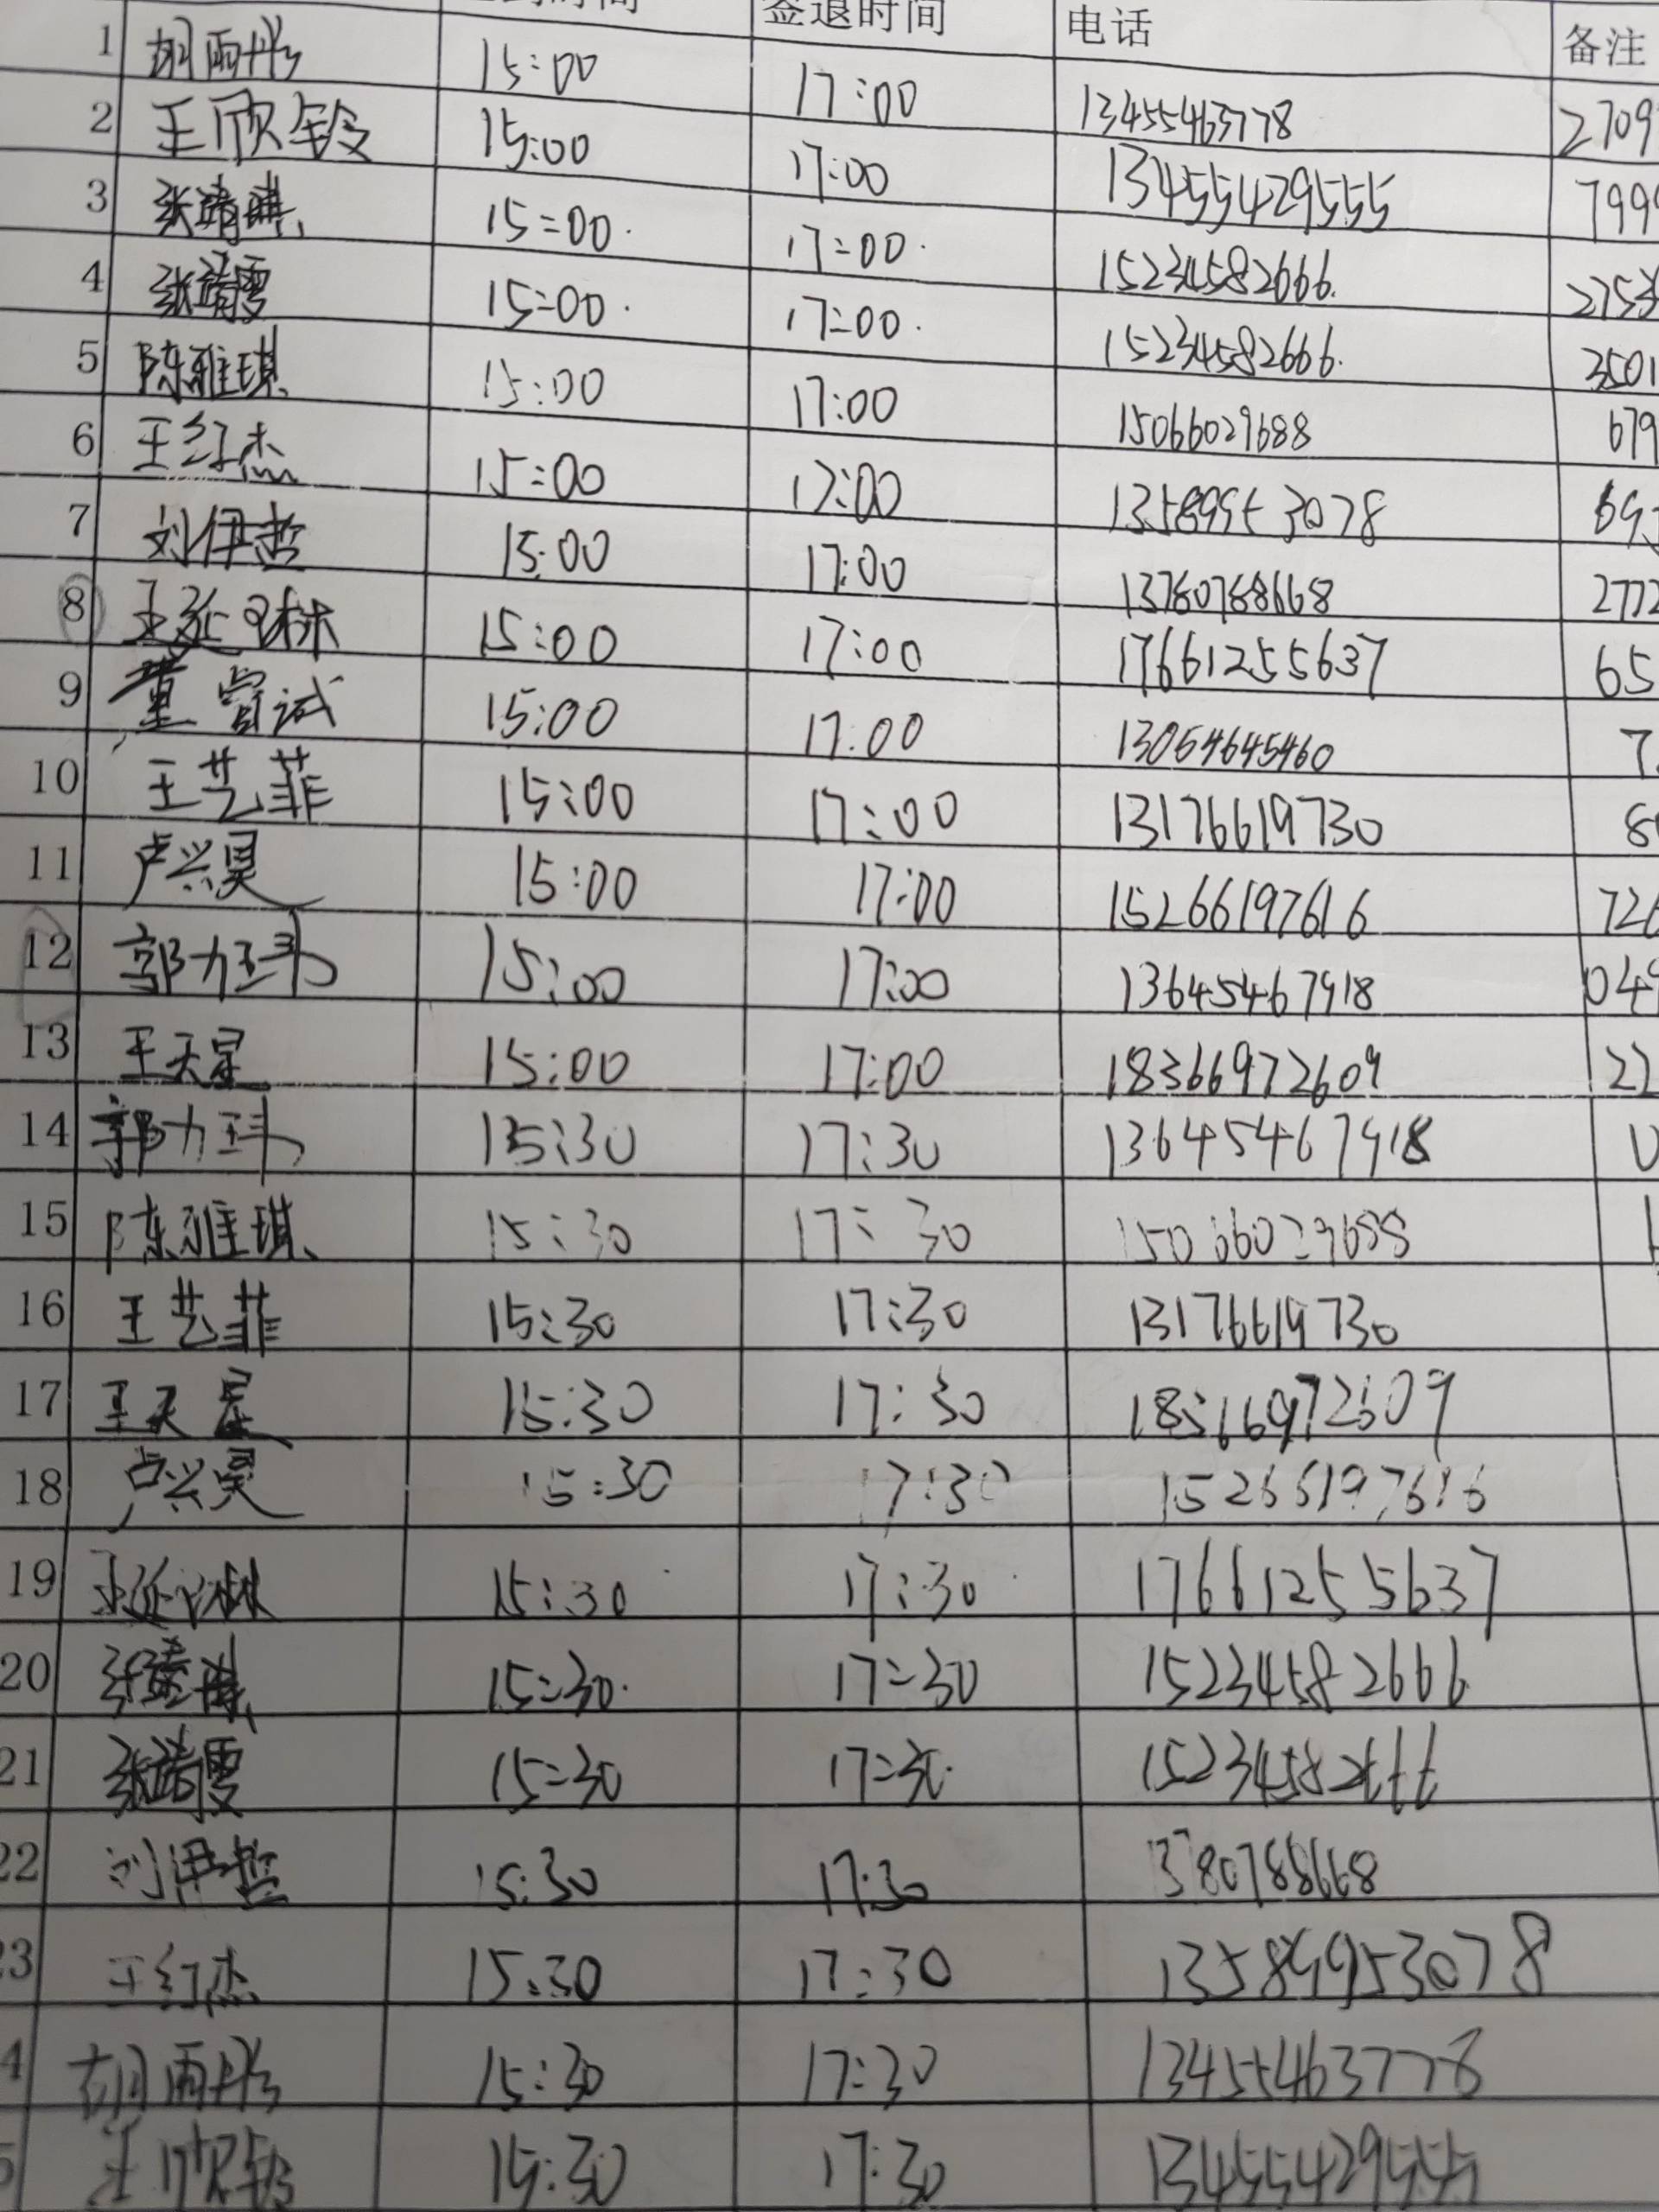 签退时间 电话 备注
1 胡雨彤 15:00 17:00 13455463778 2709
2 王欣铃 15:00 17:00 13455429555 799
3 张靖琪 15:00 17:00 15234582666 2753
4 张靖雯 15:00 17:00 15234582666 3501
5 陈雅琪 15:00 17:00 15066029688 679
6 王红杰 15:00 17:00 13589953078 69
7 刘伊哲 15:00 17:00 13780788668 2772
8 王延琳 15:00 17:00 17661255637 65
9 董官诚 15:00 17:00 13054645460 7
10 王艺菲 15:00 17:00 13176619730 8
11 卢兴昊 15:00 17:00 15266197616 726
12 郭力玮 15:00 17:00 13645467918 049
13 王天星 15:00 17:00 18366972609 22
14 郭力玮 15:30 17:30 13645467918
15 陈雅琪 15:30 17:30 15066029688
16 王艺菲 15:30 17:30 13176619730
17 王天星 15:30 17:30 18366972609
18 卢兴昊 15:30 17:30 15266197616
19 王延琳 15:30 17:30 17661255637
20 张靖琪 15:30 17:30 15234582666
21 张靖雯 15:30 17:30 15234582666
22 刘伊哲 15:30 17:30 13780788668
23 王红杰 15:30 17:30 13589953078
4 胡雨彤 15:30 17:30 13455463778
5 王欣铃 15:30 17:30 13455429555